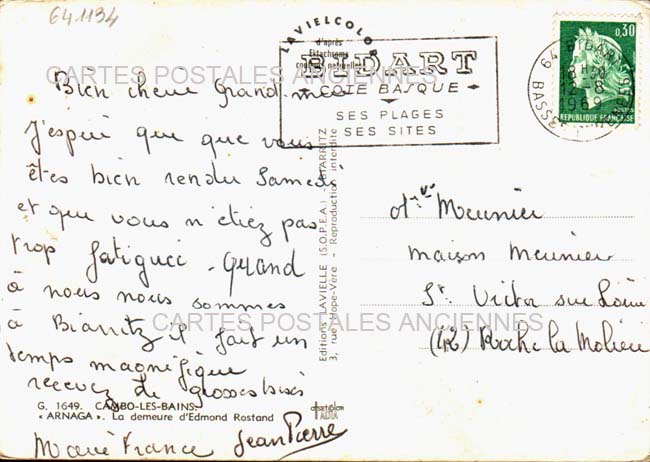 641134
LAVIELCOLOR
d'après
Ektachrome
couleurs naturelles
BIDART
COTE BASQUE
SES PLAGES
SES SITES
64 BIDART
18 H 30
12 - 8
1969
0,30
REPUBLIQUE FRANÇAISE
CARTES POSTALES ANCIENNES
Bien chere Grand-mère
J'espere que que vous
êtes bien rendu Samedi
et que vous n'étiez pas
trop fatiguee - Quand
à nous nous sommes
à Biarritz il fait un
temps magnifique
recevez de grosses bises
Marie France Jean Pierre
G. 1649. CAMBO-LES-BAINS.
« ARNAGA ». La demeure d'Edmond Rostand
Editions LAVIELLE (S.O.P.E.A.) - BIARRITZ
3, rue Hope-Vere - Reproduction interdite
Meunier
maison Meunier
St Victor sur Loire
(42) Roche la Molière
CARTES POSTALES ANCIENNES